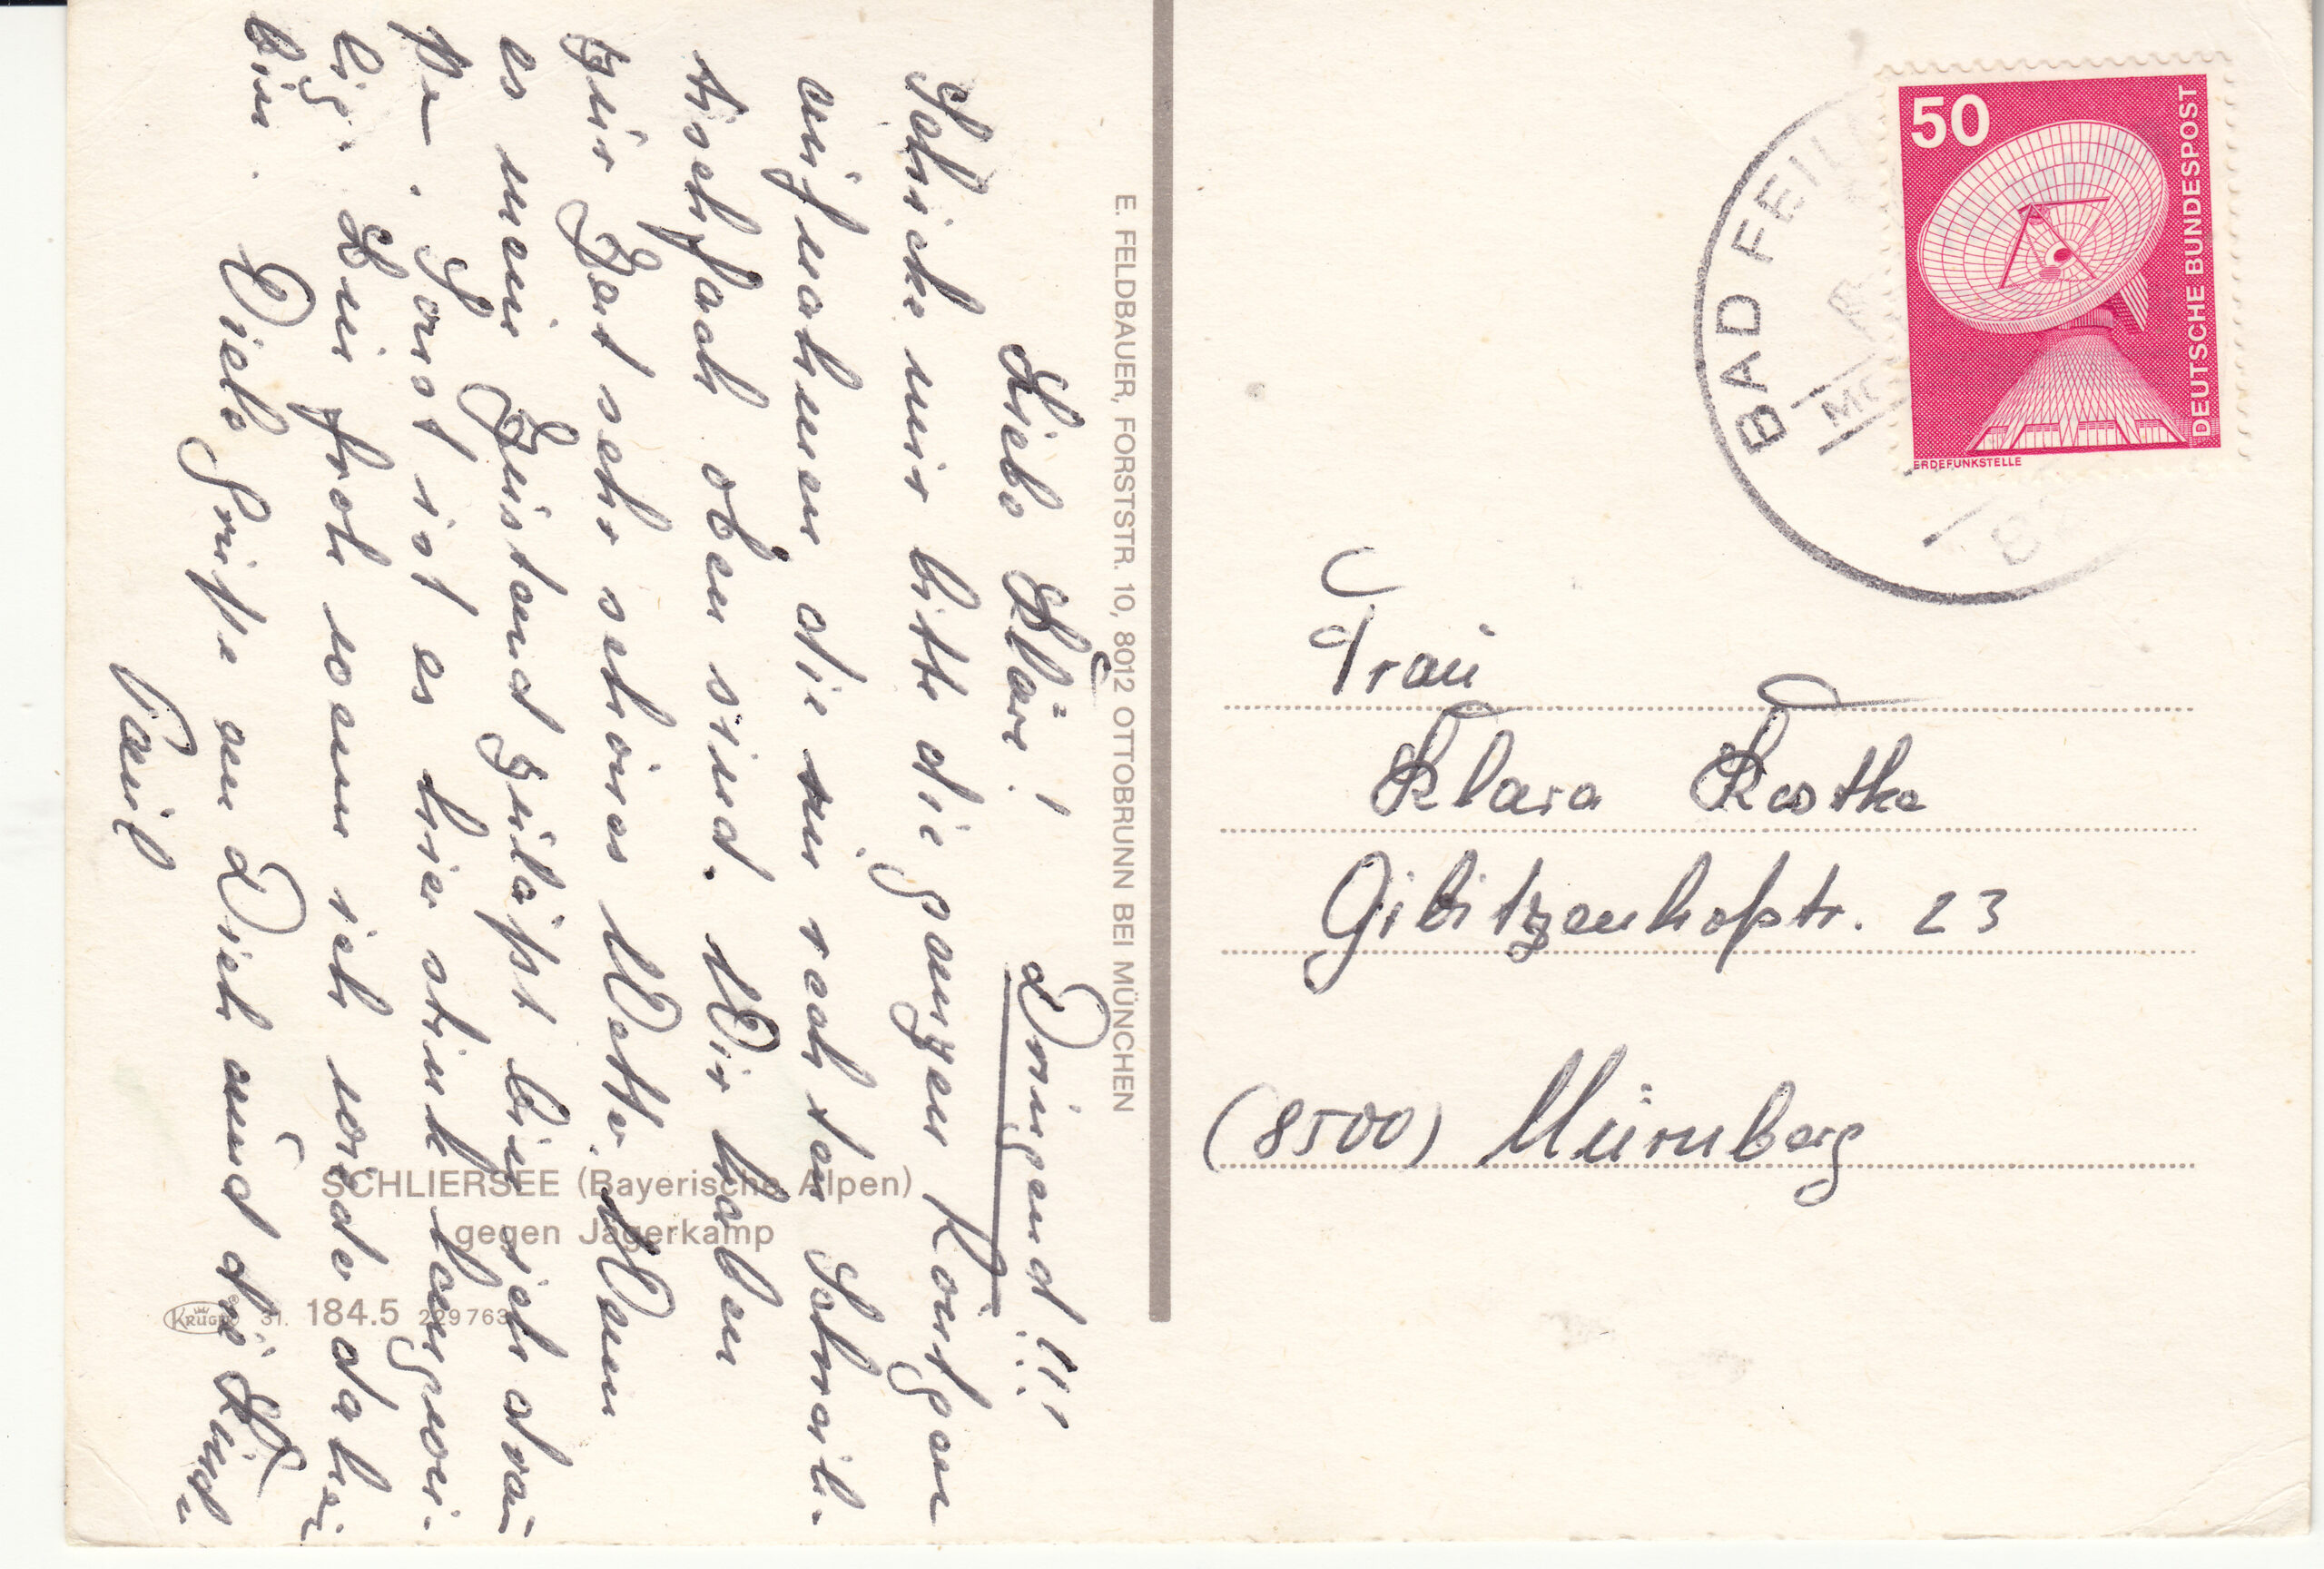 Liebe Kläre! Dringend!!!
Schicke mir bitte die ganzen Röntgen
aufnahmen die im rechten Schreib-
tischfach oben sind. Wir haben
zur Zeit sehr schönes Wetter. Wenn
es mein Zustand zuläßt bin ich drau
ße. Sonst ist es hier stink langwei-
lig. Bin froh wenn ich wieder dahei
bin. Viele Grüße an Dich und die Kinde
Paul
E. FELDBAUER, FORSTSTR. 10, 8012 OTTOBRUNN BEI MÜNCHEN
SCHLIERSEE (Bayerische Alpen)
gegen Jägerkamp
KRÜGER 31. 184.5 229763
50
DEUTSCHE BUNDESPOST
ERDEFUNKSTELLE
BAD FEIL
Frau
Klara
Gibitzenhofstr. 23
(8500) Nürnberg